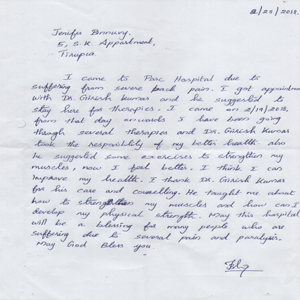 2/23/2018.
Jenifer
5, S.K Appartment,
Tirupur.
I came to Parc Hospital due to
suffering from severe back pain. I got appointment
with Dr. Girish Kumar and he suggested to
stay here for therapies. I came on 2/19/2018,
from that day onwards I have been going
though several therapies and Dr. Girish Kumar
took the responsibility of my better health also
he suggested some exercises to strengthen my
muscles, now I feel better. I think I can
improve my health. I thank Dr. Girish Kumar
for his care and counselling. He taught me about
how to strengthen my muscles and how can I
develop my physical strength. May this hospital
will be a blessing for many people who are
suffering due to several pain and paralysis.
May God Bless you